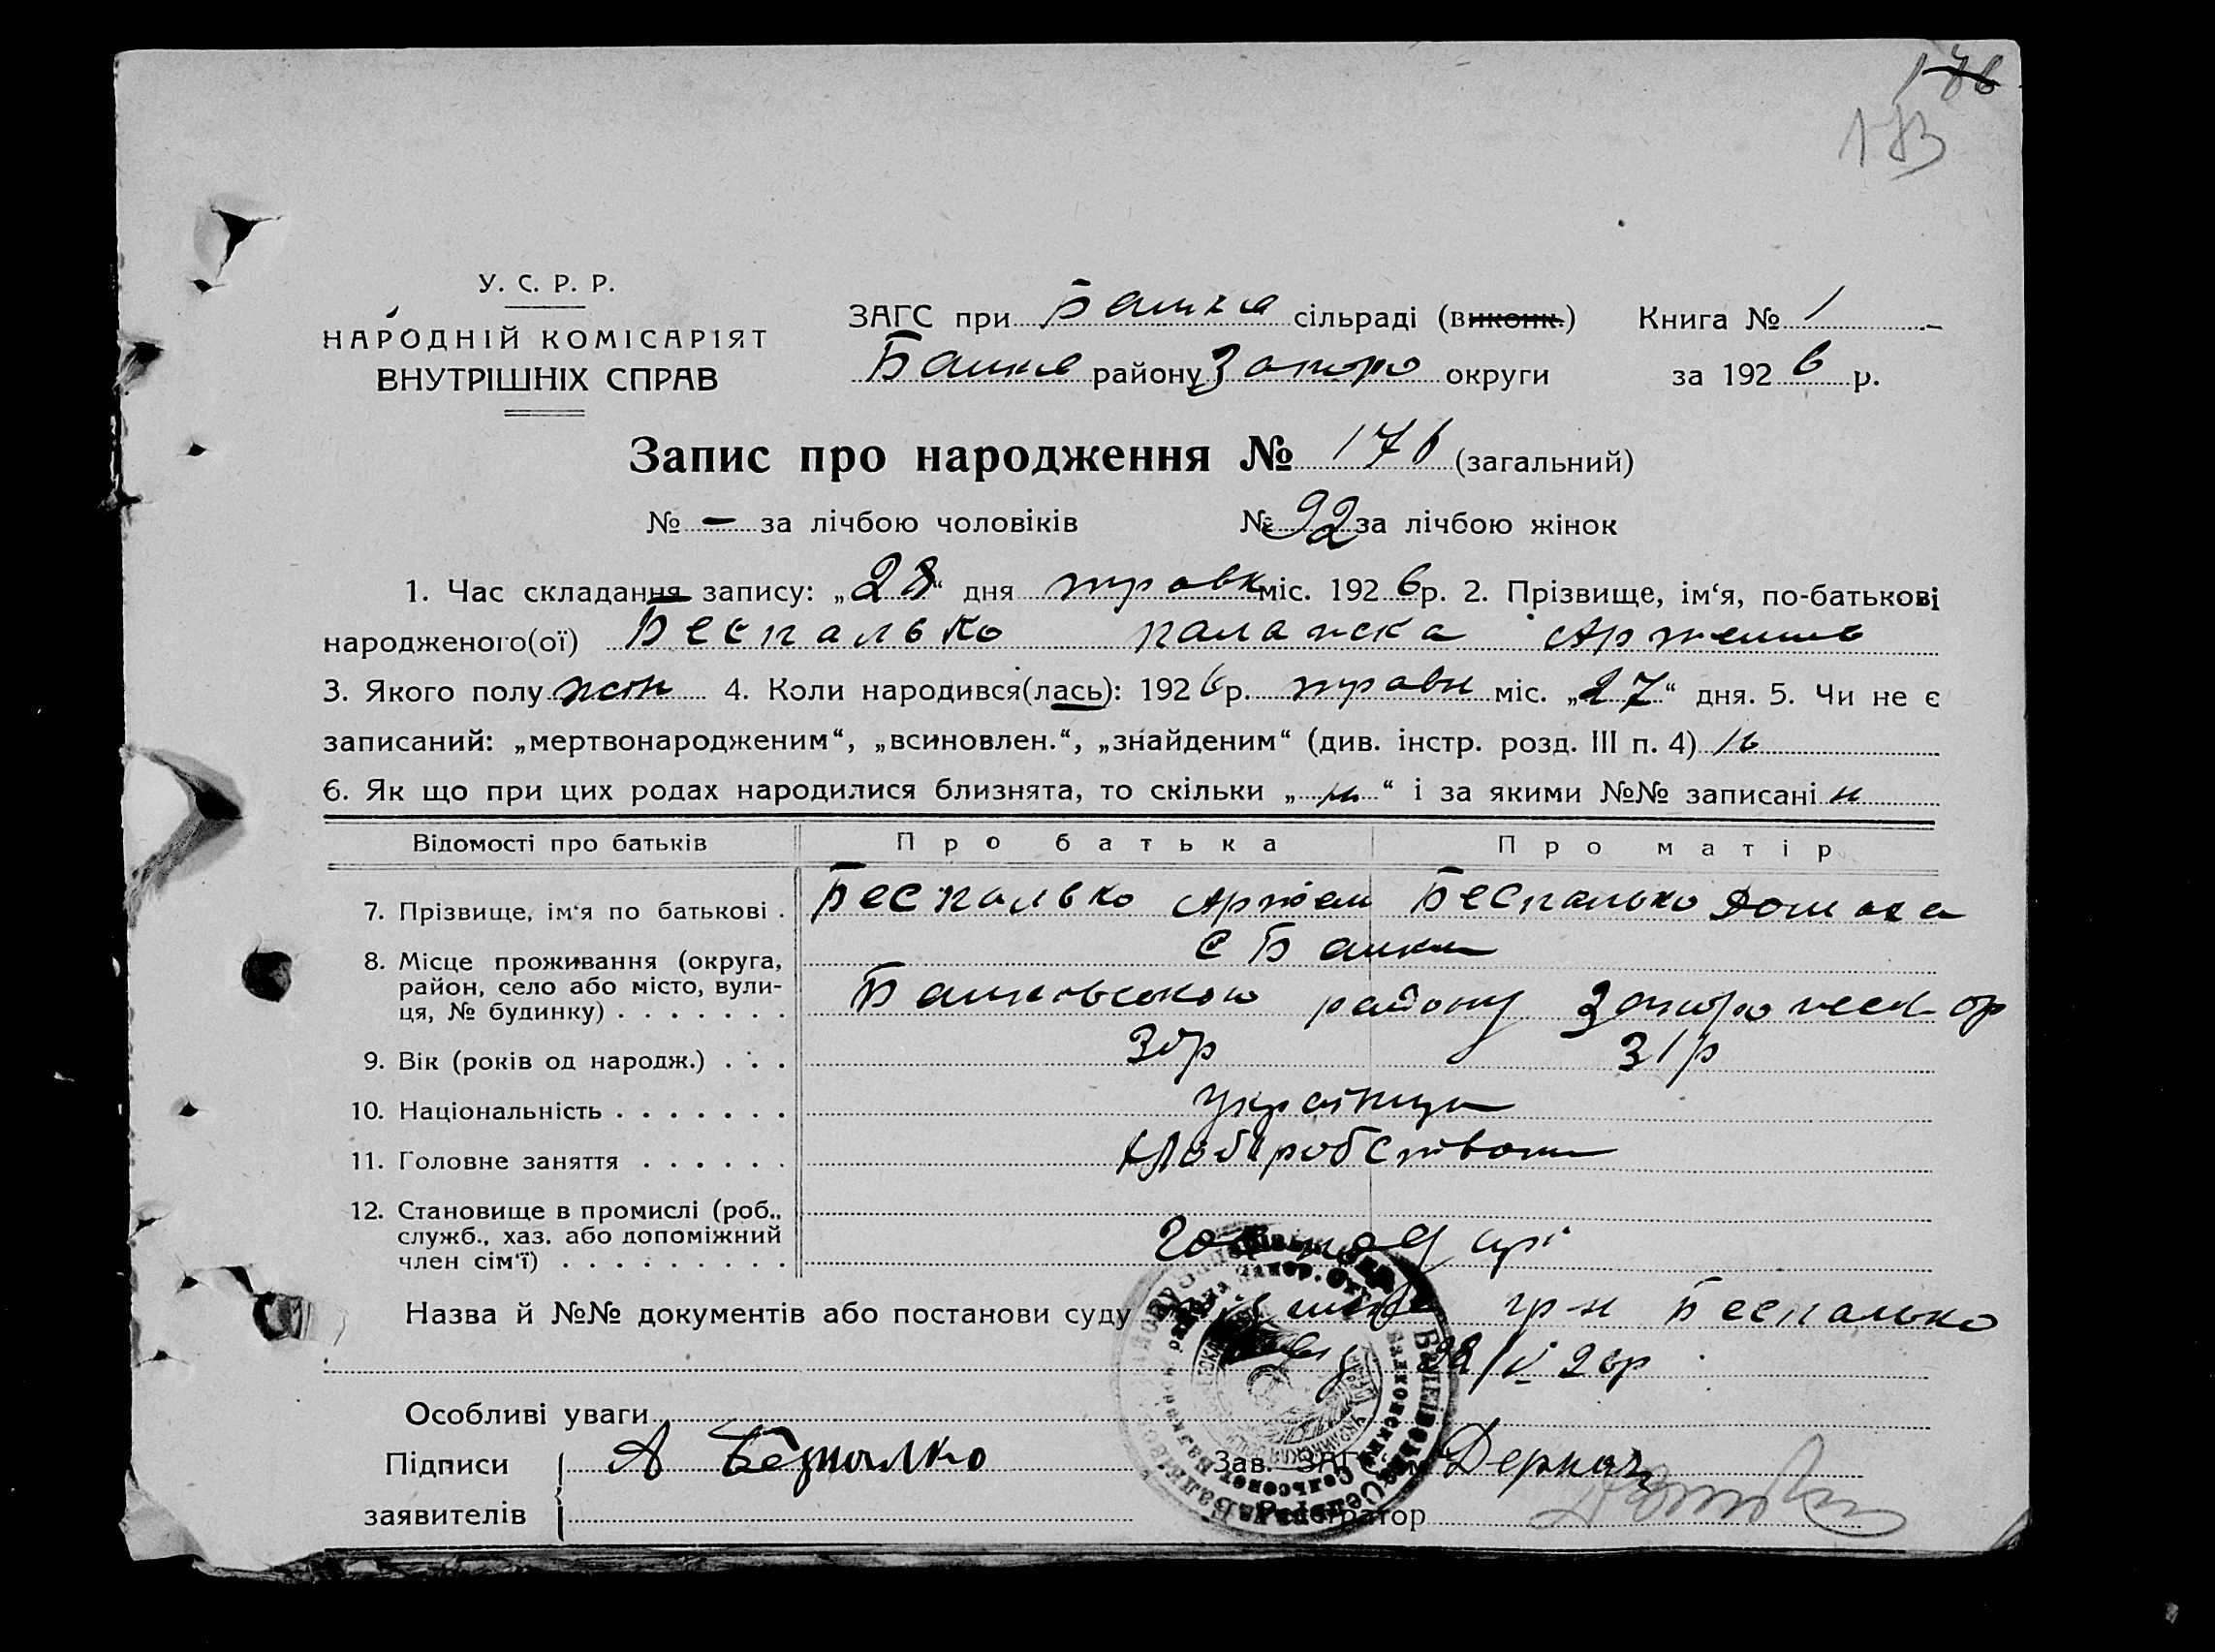 176
173
У. С. Р. Р.
НАРОДНІЙ КОМІСАРІЯТ
ВНУТРІШНІХ СПРАВ
ЗАГС при Балка сільраді (виконк.) Книга № 1
Балке району Запоро округи за 1926 р.
Запис про народження № 176 (загальний)
№ — за лічбою чоловіків № 92 за лічбою жінок
1. Час складання запису: „28“ дня травн міс. 1926 р. 2. Прізвище, ім‘я, по-батькові
народженого(ої) Беспалько Палажка
3. Якого полу жін 4. Коли народився(лась): 1926 р. травн міс. „27“ дня. 5. Чи не є
записаний: „мертвонародженим“, „всиновлен.“, „знайденим“ (див. інстр. розд. III п. 4)
6. Як що при цих родах народилися близнята, то скільки „ “ і за якими №№ записані
Відомості про батьків Про батька Про матір
7. Прізвище, ім‘я по батькові . Беспалько Артем Беспалько Домаха
8. Місце проживання (округа, с Балки
район, село або місто, вули-
ця, № будинку) . . . . . . . Балковського району
9. Вік (років од народж.) . . . 31 р
10. Національність . . . . . . . Українци
11. Головне заняття . . . . . . Хліборобством
12. Становище в промислі (роб.,
служб., хаз. або допоміжний
член сім‘ї) . . . . . . . . . господарі
Назва й №№ документів або постанови суду гр-н Беспалько
28/V 26р
Особливі уваги
Підписи А Безпалко Зав. ЗАГС‘ом Деркач
заявителів Реєстратор